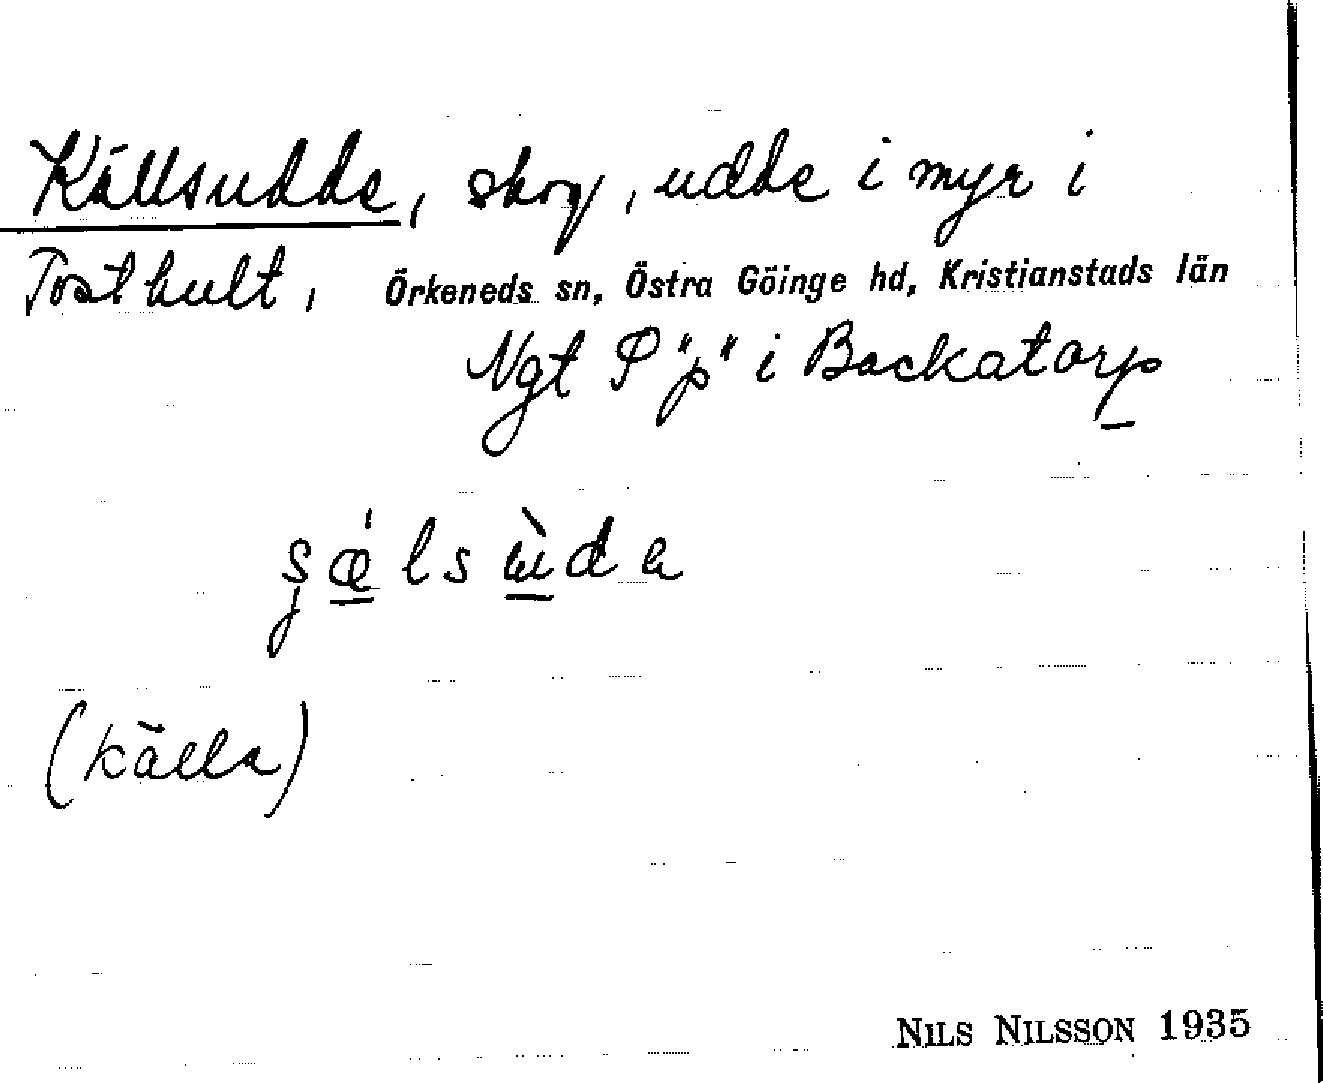 Källsudde, skog, udde i myr i
Tosthult, Örkeneds sn, Östra Göinge hd, Kristianstads län
Ngt S "p" i Backatorp
(källa)
NILS NILSSON 1935